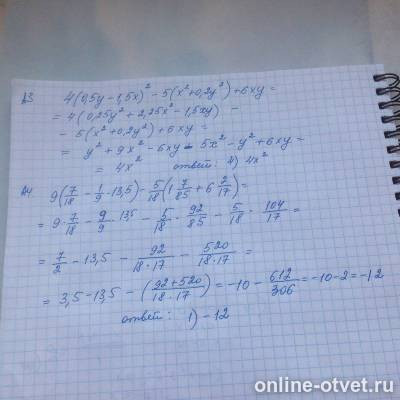 А3 4(0,5y-1,5x)² - 5(x²+0,2y²)+6xy=
= 4(0,25y²+2,25x²-1,5xy) -
- 5(x²+0,2y²)+6xy=
= y²+9x²-6xy-5x²-y²+6xy=
= 4x² ответ: 4) 4x²
А4 9(7/18 - 1/9 · 13,5) - 5/18(1 7/85 + 6 2/17)=
= 9·7/18 - 9/9 · 13,5 - 5/18 · 92/85 - 5/18 · 104/17 =
= 7/2 - 13,5 - 92/18·17 - 520/18·17 =
= 3,5-13,5 - (92+520/18·17) = -10 - 612/306 = -10-2=-12
ответ: 1) -12
online-otvet.ru